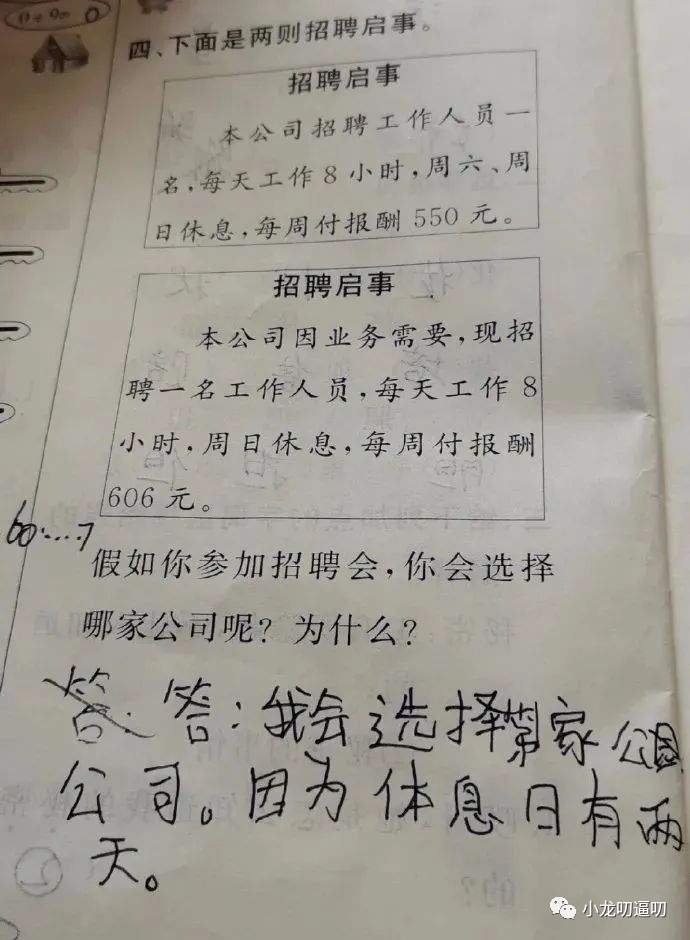 四、下面是两则招聘启事。
招聘启事
本公司招聘工作人员一
名,每天工作8小时,周六、周
日休息,每周付报酬550元。
招聘启事
本公司因业务需要,现招
聘一名工作人员,每天工作8
小时,周日休息,每周付报酬
606元。
假如你参加招聘会,你会选择
哪家公司呢?为什么?
答:我会选择第家
公司。因为休息日有两
天。
小龙叨逼叨